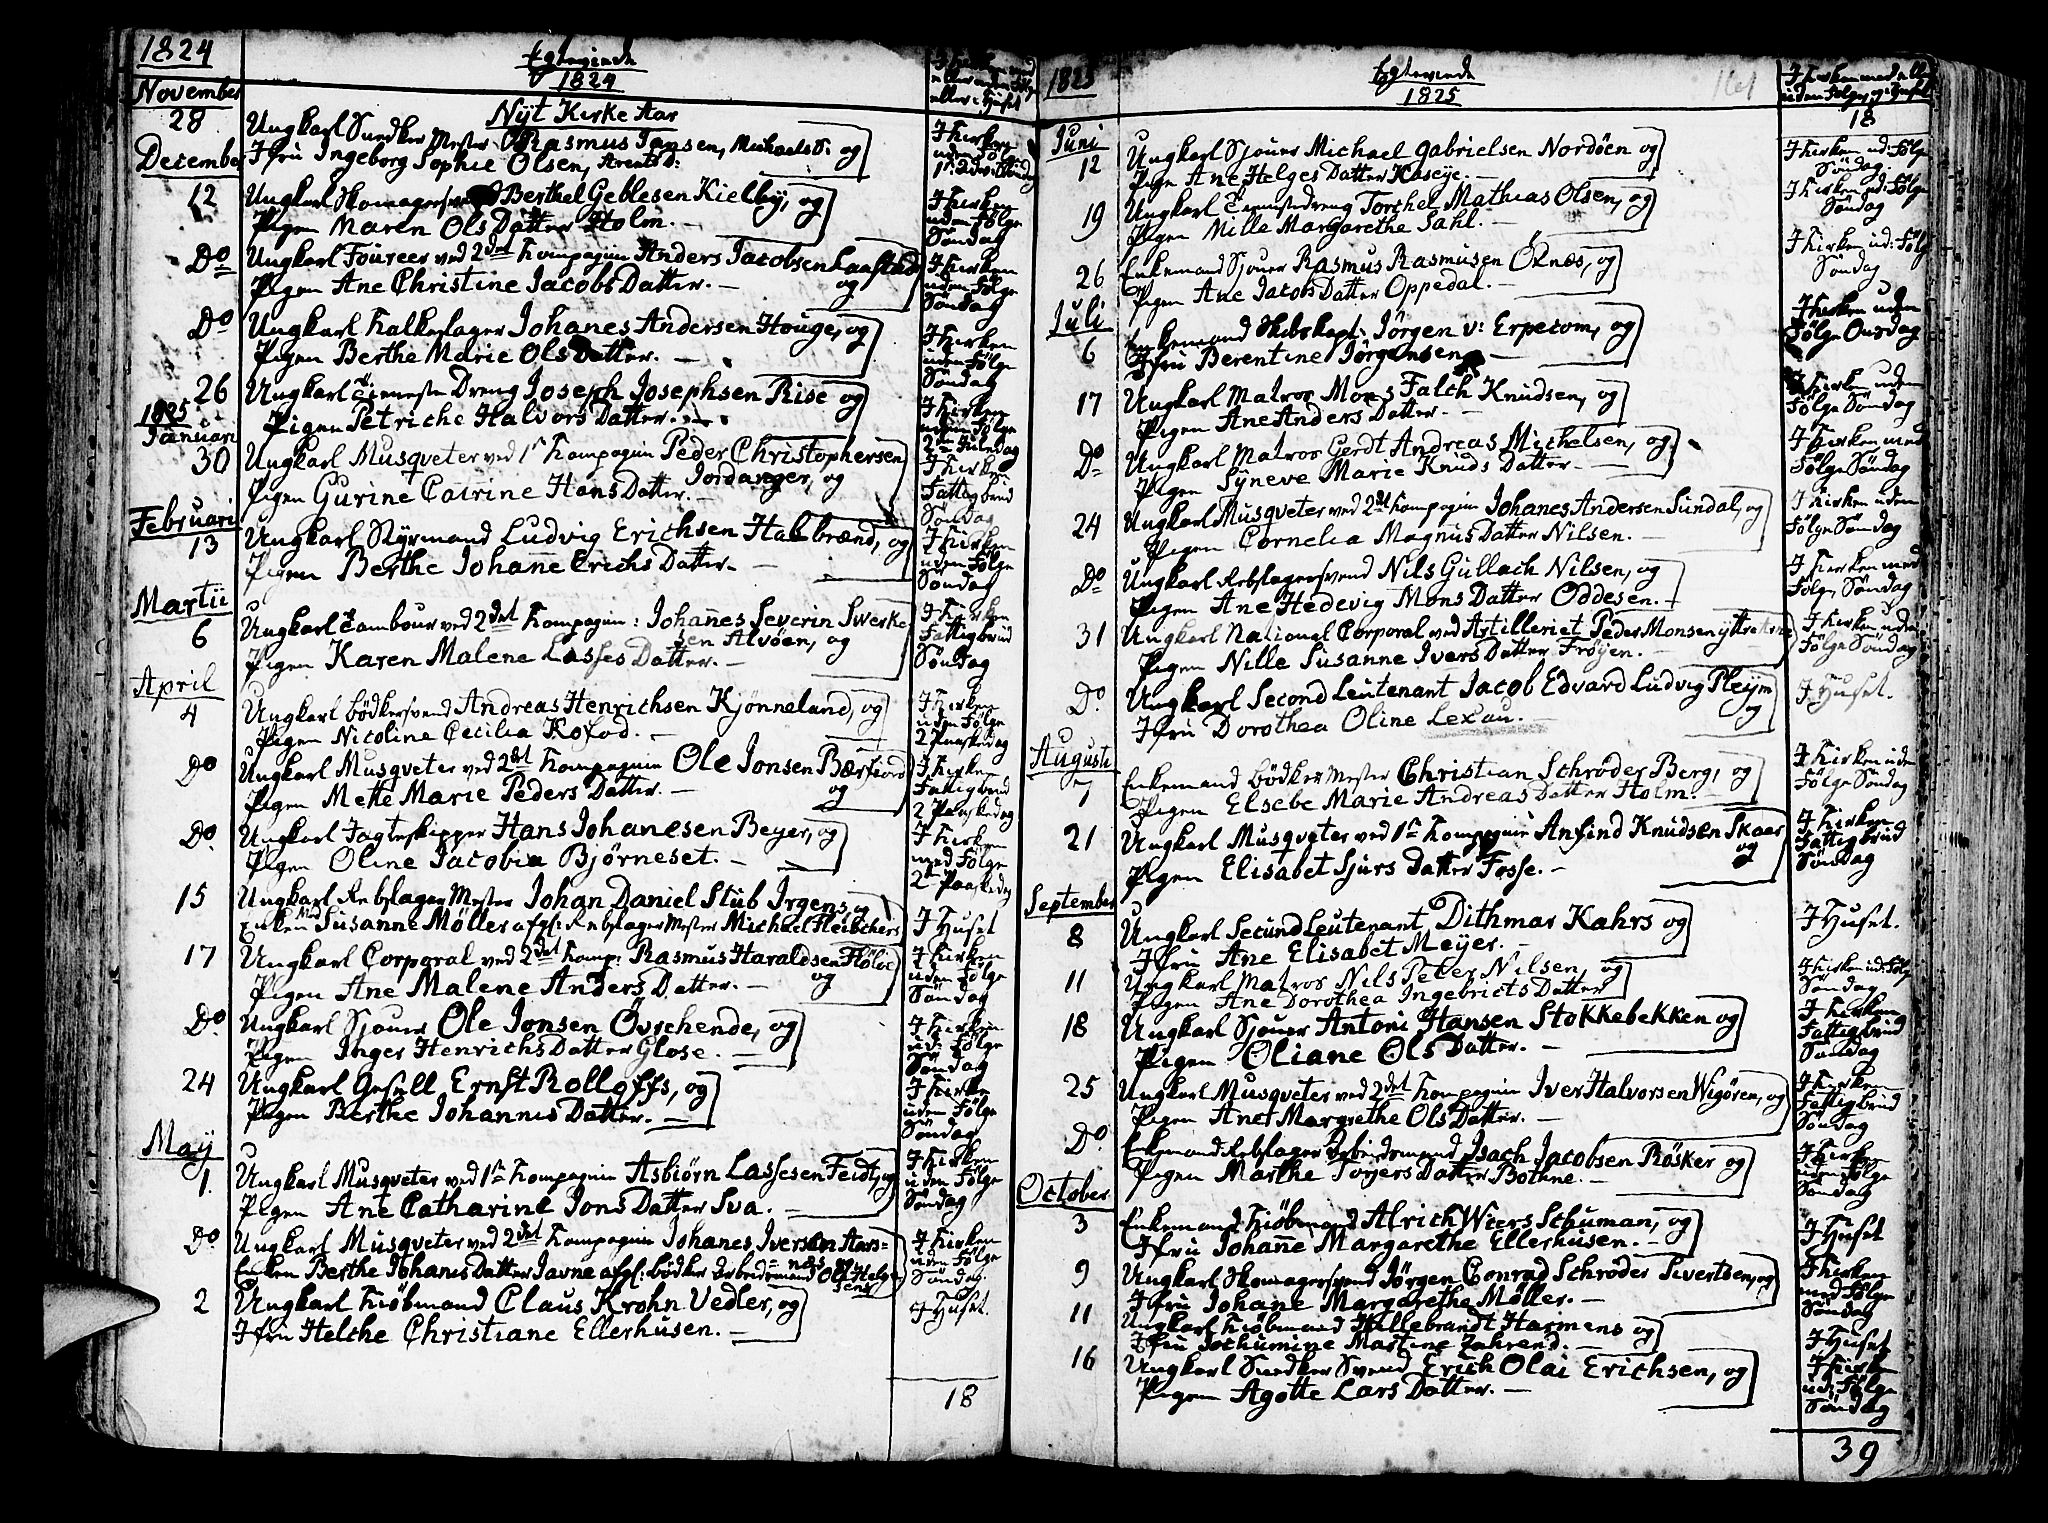 1824
Egteviede
1824
November
28
Nyt Kirke Aar
Ungkarl Snedker Mester Rasmus Jansen, Michaels S: og
Jfru Ingeborg Sophie Olsen, Arents D:
J Kirken
uden Følge
December
12
Ungkarl Skomagersvend Berthel Geblesen Kielby, og
Pigen Maren Ols Datter Holm. —
J Kirken
uden Følge
Søndag
Do
Ungkarl Foureer ved 2det Kompagnie Anders Jacobsen Laastad
og
Pigen Ane Christine Jacobs Datter. —
J Kirken
uden Følge
Søndag
Do
Ungkarl Kalkeslager Johanes Andersen Houge, og
Pigen Berthe Marie Ols Datter. —
J Kirken
uden Følge
Søndag
26
Ungkarl Tiemeste Dreng Joseph Josephsen Rise og
Pigen Petriche Halvors Datter. —
J Kirken
uden Følge
2den Juledag
1825
Januari
30
Ungkarl Musqveter ved 1r Kompagnie Peder Christophersen
Jordanger, og
Pigen Gurine Catrine Hans Datter. —
J Kirken
Fattigbrud
Søndag
Februari
13
Ungkarl Styrmand Ludvig Erichsen Halbrænd, og
Pigen Berthe Johanne Erichs Datter. —
J Kirken
uden Følge
Søndag
Martii
6
Ungkarl Tambour ved 2det Kompagnie: Johanes Severin Swerke
sen Alvøen, og
Pigen Karen Malene Lasses Datter. —
J Kirken
Fattigbrud
Søndag
April
4
Ungkarl bödkersvend Andreas Henrichsen Kjönneland, og
Pigen Nicoline Cecilia Kofod. —
J Kirken
uden Følge
2 Paaskedag
Do
Ungkarl Musqveter ved 2det Kompagnie Ole Jonsen Bærfiord
og
Pigen Mette Marie Peders Datter. —
J Kirken
Fattigbrud
2 Paaskedag
Do
Ungkarl Jagteskipper Hans Johanesen Beyer, og
Pigen Oline Jacobia Björneset. —
J Kirken
med Følge
2 Paaskedag
15
Ungkarl Rebslager Mester Johan Daniel Stub Irgens, og
Enken Md Susanne Möller afgl: Rebslager Mester Michael Fleischers
J Huset
17
Ungkarl Corporal ved 2det Komp: Rasmus Haraldsen Flölie
og
Pigen Ane Malene Anders Datter. —
J Kirken
uden Følge
Søndag
Do
Ungkarl Sjouer Ole Jonsen Övrehende, og
Pigen Inger Henrichs Datter Glose. —
J Kirken
ud: Følge
Søndag
24
Ungkarl Gesell Ernst Rolloffs, og
Pigen Berthe Johannis Datter. —
J Kirken
uden Følge
Søndag
May
1.
Ungkarl Musqveter ved 1r Kompagnie Asbiörn Lassesen Feidt, og
Pigen Ane Catharine Jons Datter Sva. —
J Kirken
uden Følge
Søndag
Do
Ungkarl Musqveter ved 2det Kompagnie Johanes Iversen Aars=
=næs og
Enken Berthe Johanis Datter Javne afgl: bödker Arbeidsmand Ole Helge
sens
J Kirken
uden Følge
Søndag.
2
Ungkarl Kiöbmand Claus Krohn Vedler, og
Jfru Helche Christiane Ellerhusen. —
J Huset.
18
1825
Egteviede
1825
161
J Kirken med eller
uden Følge og i Huset
18
Juni
12
Ungkarl Sjouer Michael Gabrielsen Nordöen og
Pige Ane Helges Datter Kaseye. —
J Kirken ud: Følge
Søndag
19
Ungkarl Tiemestedreng Torchel Mathias Olsen, og
Pigen Nille Margarethe Sahl. —
J Kirken ud: Følge
Søndag
26
Enkemand Sjouer Rasmus Rasmusen Öxnæs, og
Pigen Ane Jacobs Datter Oppedal. —
J Kirken ud: Følge
Søndag
Juli
6
Enkemand Skibskapt: Jörgen v: Erpecom, og
Jfru Berentine Jörgensen —
J Kirken uden
Følge Onsdag
17
Ungkarl Matros Mons Falch Knudsen, og
Pigen Ane Anders Datter. —
J Kirken uden
Følge Søndag
Do
Ungkarl Matros Gerdt Andreas Michelsen, og
Pigen Syneve Marie Knuds Datter. —
J Kirken med
Følge Søndag
24
Ungkarl Musqveter ved 2det Kompagnie Johanes Andersen Sundal, og
Pigen Cornelia Magnus Datter Nilsen. —
J Kirken uden
Følge Søndag
Do
Ungkarl Rebslagersvend Nils Gullach Nilsen, og
Pigen Ane Hedevig Mons Datter Oddesen. —
J Kirken med
Følge, Søndag
31
Ungkarl National Corporal ved Artilleriet Peder Monsen
Pigen Nille Susanne Ivers Datter Fröyen. —
J Kirken uden
Følge Søndag
Do.
Ungkarl Second Leutenant Jacob Edvard Ludvig Pleym
og
Jfru Dorothea Oline Lexau. —
J Huset.
Augusti
7
Enkemand bödker Mester Christian Schröder Berg, og
Pigen Elsebe Marie Andreas Datter Holm. —
J Kirken uden
Følge Søndag
21
Ungkarl Musqveter ved 1r Kompagnie Anfind Knudsen Skaar
og
Pigen Elisabet Sjurs Datter Fosse. —
J Kirken
Fattigbrud
Søndag
September
8
Ungkarl Secund Leutenant Dithmar Kahrs og
Jfru Ane Elisabet Meyer. —
J Huset.
11
Ungkarl Matros Nils Peter Nilsen, og
Pigen Ane Dorothea Ingebricts Datter
J Kirken ud: Følge
Søndag
18
Ungkarl Sjouer Antoni Hansen Stokkebekken og
Pigen Oliane Ols Datter. —
J Kirken
Fattigbrud
Søndag
25
Ungkarl Musqveter ved 2det Kompagnie Iver Halvorsen Wigören, og
Pigen Ane Margrethe Ols Datter. —
J Kirken
Fattigbrud
Søndag
Do.
Enkemand Rebslager Arbeidsmand Isach Jacobsen Röskær og
Pigen Marthe Torgers Datter Bothne. —
J Kirken
uden Følge
Søndag
October
3
Enkemand Kiöbmand Alrich Wiers Schuman, og
Jfru Johanne Margarethe Ellerhusen. —
J Huset
9
Ungkarl Skomagersvend Jörgen Conrad Schröder Sivertsen, og
Jfru Johane Margarethe Möller. —
J Kirken
med Følge
Søndag
11
Ungkarl Kiöbmand Hillebrandt Harmens og
Jfru Jochumine Martine Zahrend. —
J Huset
16
Ungkarl Snedker Svend Erich Olai Erichsen, og
Pigen Agotte Lars Datter. —
J Kirken
ud: Følge
Søndag
39